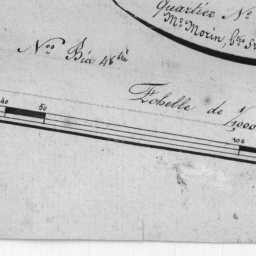 Quartier No
Mr Morin,
Nos Bis 48
Echelle de 1/1000
40 50 100